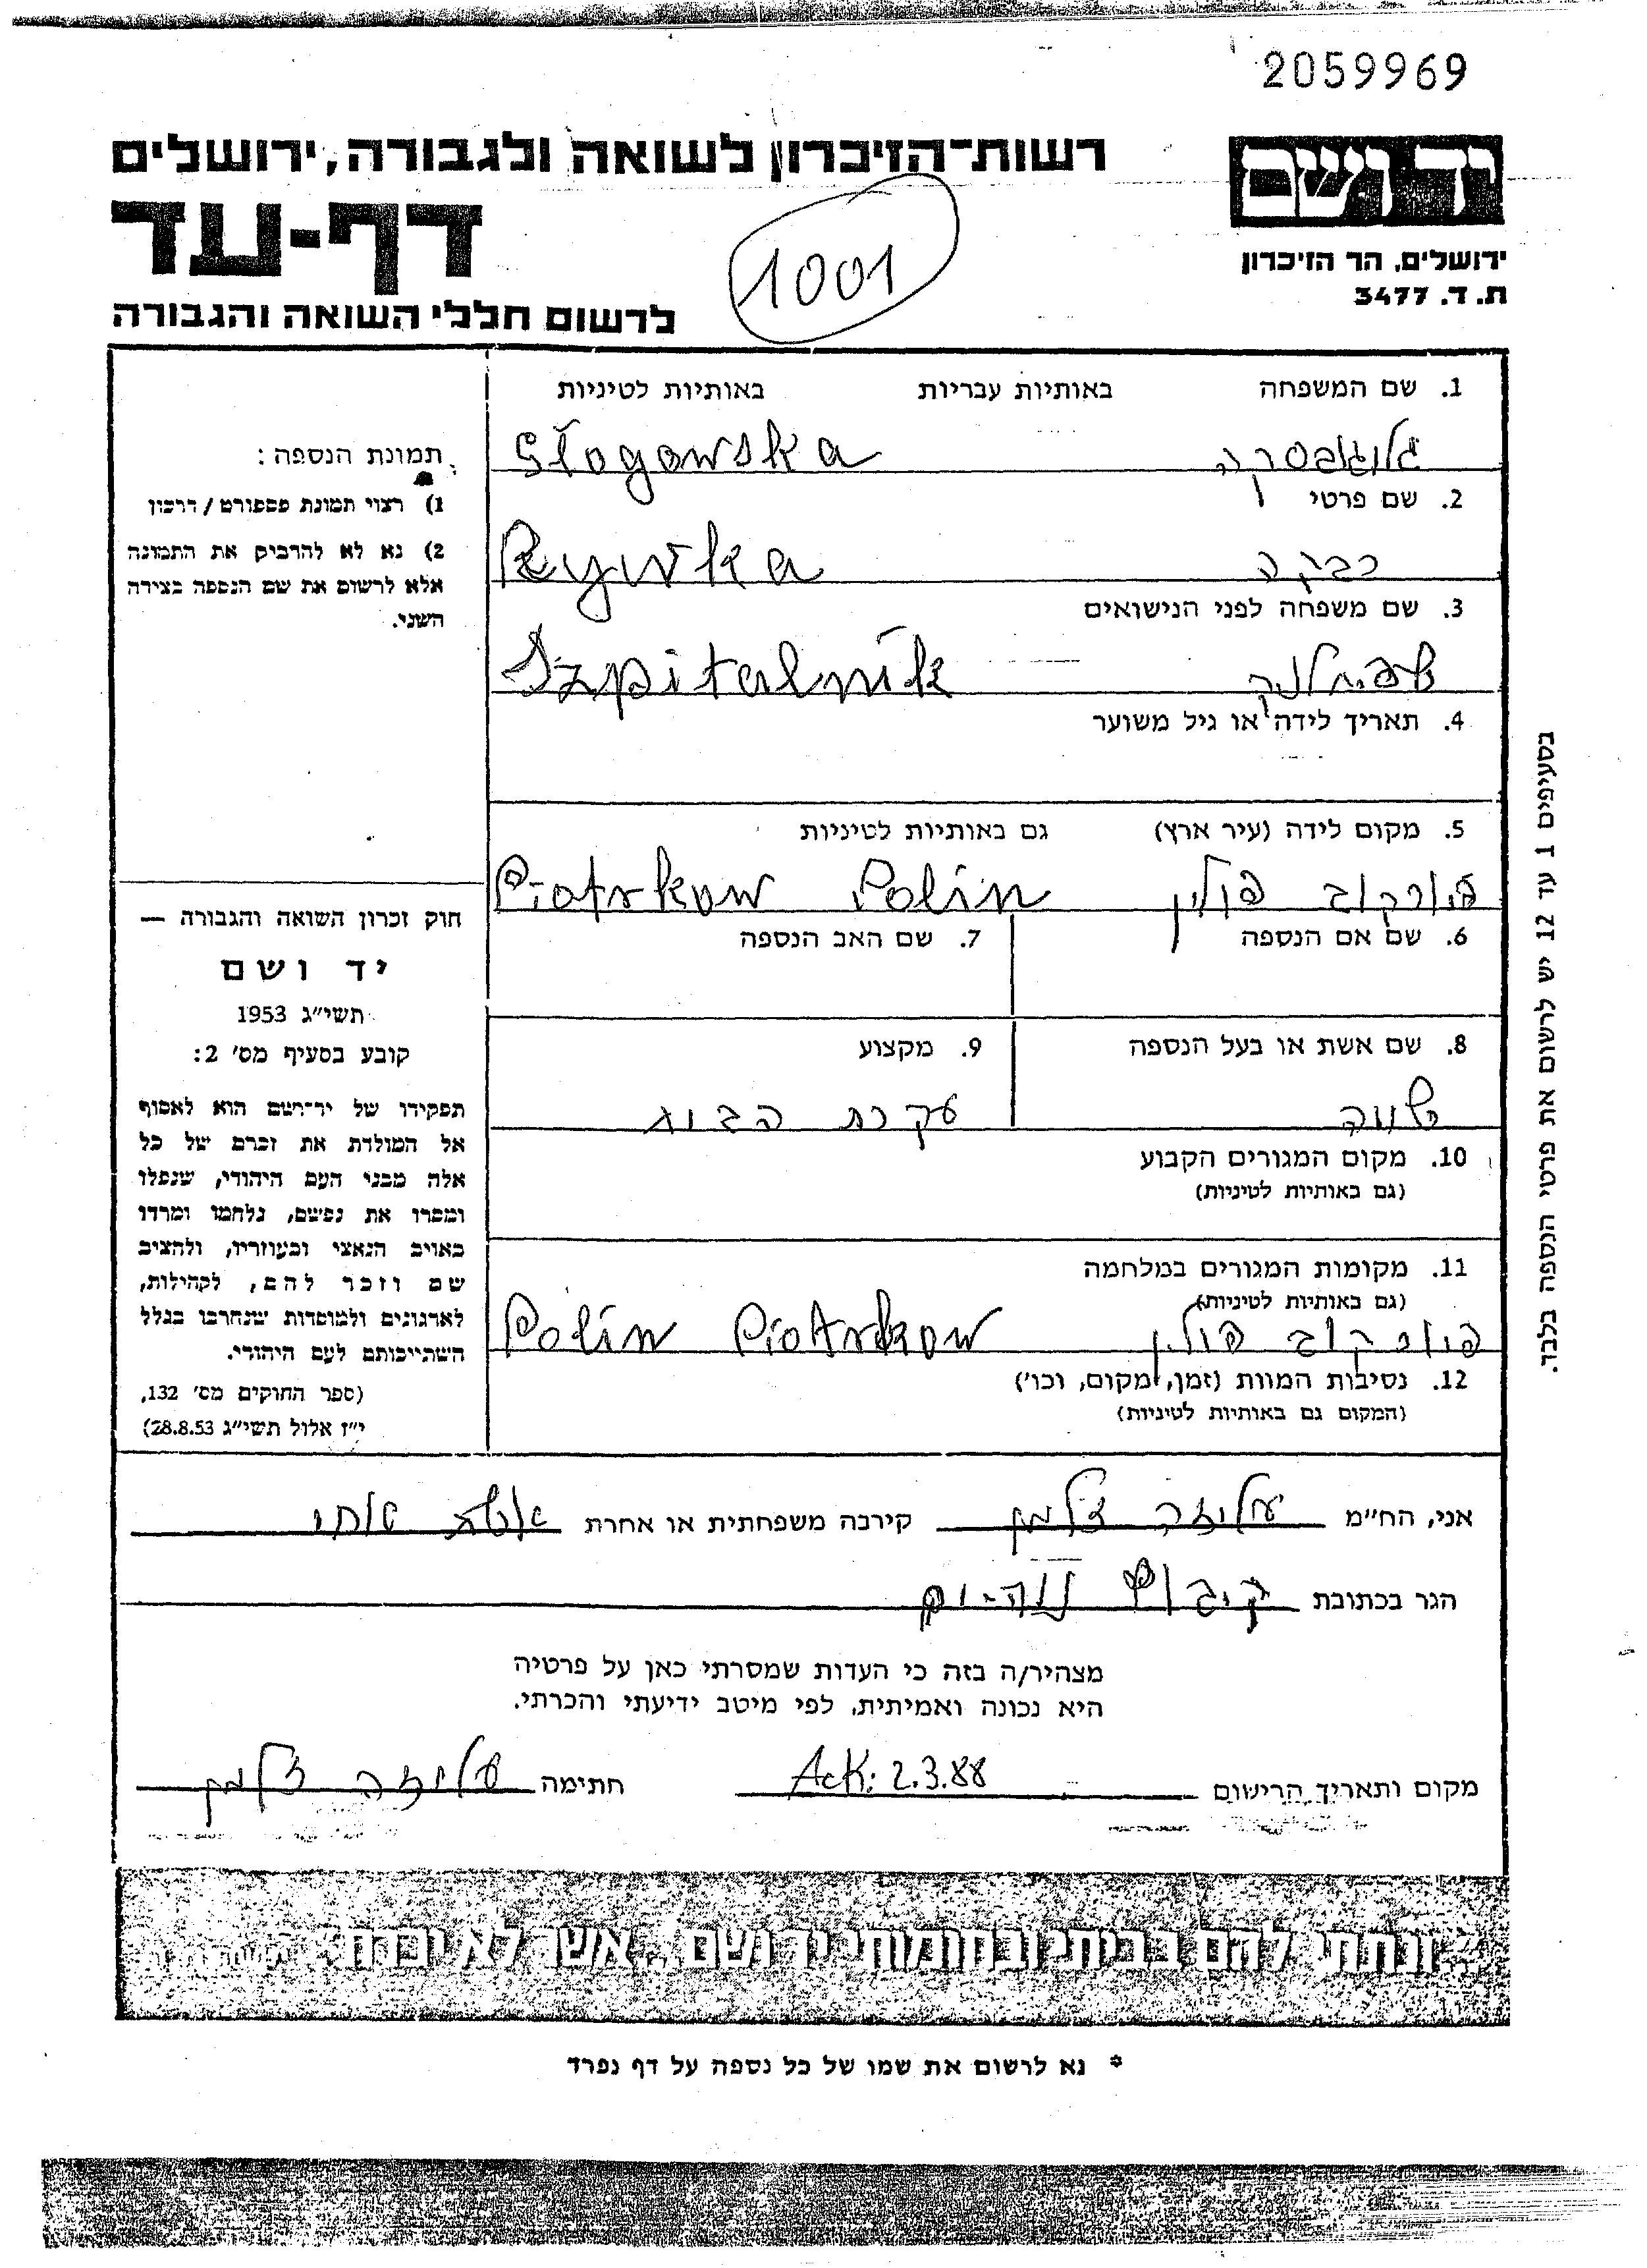 2059969
יד ושם
רשות־הזיכרון לשואה ולגבורה, ירושלים
דף-עד
1001
ירושלים, הר הזיכרון
ת. ד. 3477
לרשום חללי השואה והגבורה
1. שם המשפחה באותיות עבריות באותיות לטיניות
Słogowska
2. שם פרטי
Rywka רבקה
3. שם משפחה לפני הנישואים
Szpitalnik
4. תאריך לידה או גיל משוער
5. מקום לידה (עיר ארץ) גם באותיות לטיניות
פולין Piotrkow Polin
6. שם אם הנספה
7. שם האב הנספה
8. שם אשת או בעל הנספה
9. מקצוע
עקרת הבית
10. מקום המגורים הקבוע
(גם באותיות לטיניות)
11. מקומות המגורים במלחמה
(גם באותיות לטיניות)
פולין Polin Piotrkow
12. נסיבות המוות (זמן, מקום, וכו')
(המקום גם באותיות לטיניות)
תמונת הנספה:
1) רצוי תמונת פספורט / דרכון
2) נא לא להדביק את התמונה
אלא לרשום את שם הנספה בצידה
השני.
חוק זכרון השואה והגבורה —
יד ושם
תשי"ג 1953
קובע בסעיף מס' 2:
תפקידו של יד־ושם הוא לאסוף
אל המולדת את זכרם של כל
אלה מבני העם היהודי, שנפלו
ומסרו את נפשם, נלחמו ומרדו
באויב הנאצי ובעוזריו, ולהציב
שם וזכר להם, לקהילות,
לארגונים ולמוסדות שנחרבו בגלל
השתייכותם לעם היהודי.
(ספר החוקים מס' 132,
י"ז אלול תשי"ג 28.8.53)
בסעיפים 1 עד 12 יש לרשום את פרטי הנספה בלבד.
אני, הח"מ עליזה צלמן קירבה משפחתית או אחרת אשת אחי
הגר בכתובת קיבוץ
מצהיר/ה בזה כי העדות שמסרתי כאן על פרטיה
היא נכונה ואמיתית, לפי מיטב ידיעתי והכרתי.
מקום ותאריך הרישום Ack: 2.3.88 חתימה עליזה צלמן
"ונתתי להם בביתי ובחומותי יד ושם... אשר לא יכרת"
* נא לרשום את שמו של כל נספה על דף נפרד